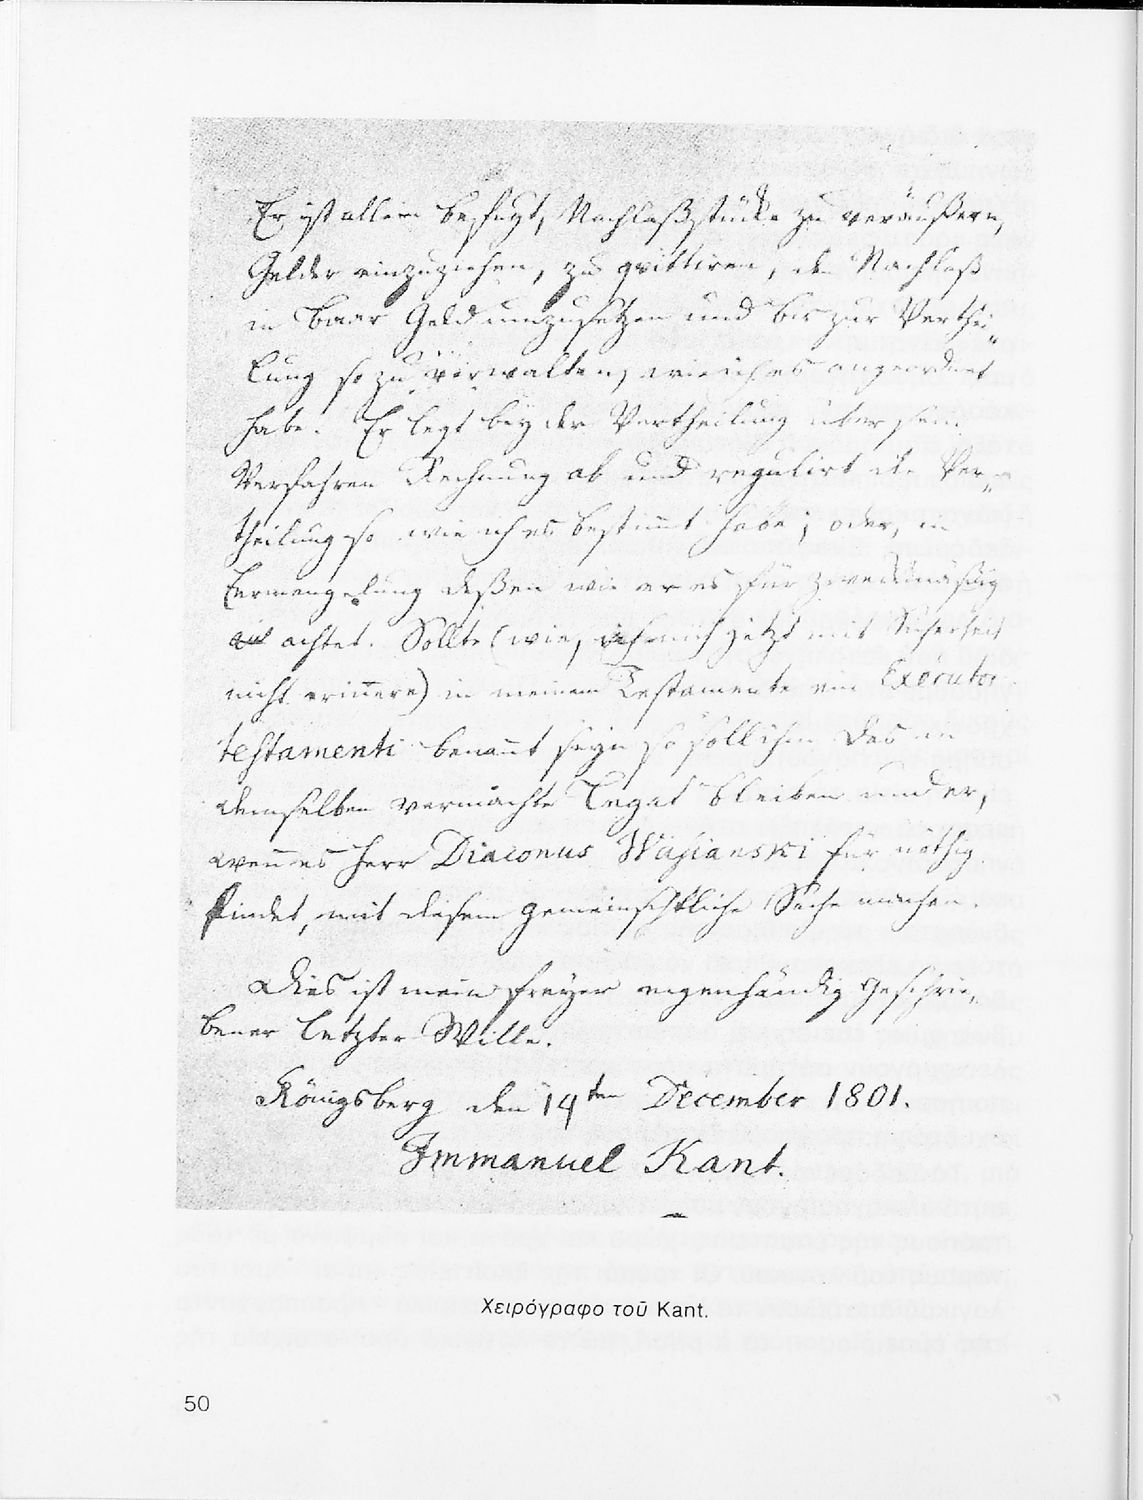 Er ist allein befugt, Nachlaßstücke zu veräußern,
Gelder einzuziehen, zu quittiren, den Nachlaß
in baar Geld umzusetzen und bis zur Verthei„
lung so zu verwalten, wie ich es angeordnet
habe. Er legt bey der Vertheilung über sein
Verfahren Rechnung ab und regulirt die Ver„
theilung so wie ich es bestimmt habe; oder, in
Ermangelung deßen wie er es für zweckmäßig
achtet. Sollte (wie, ich mich jetzt mit Sicherheit
nicht erinnere) in meinem Testamente ein Executor
testamenti benannt seyn so soll ihm das in
demselben vermachte Legat bleiben und er,
wenn es Herr Diaconus Wasianski für nöthig
findet, mit diesem gemeinschftliche Sache machen.
Dies ist mein freyer eigenhändig geschrie„
bener letzter Wille.
Königsberg den 14ten December 1801.
Immanuel Kant.
Χειρόγραφο τοῦ Kant.
50